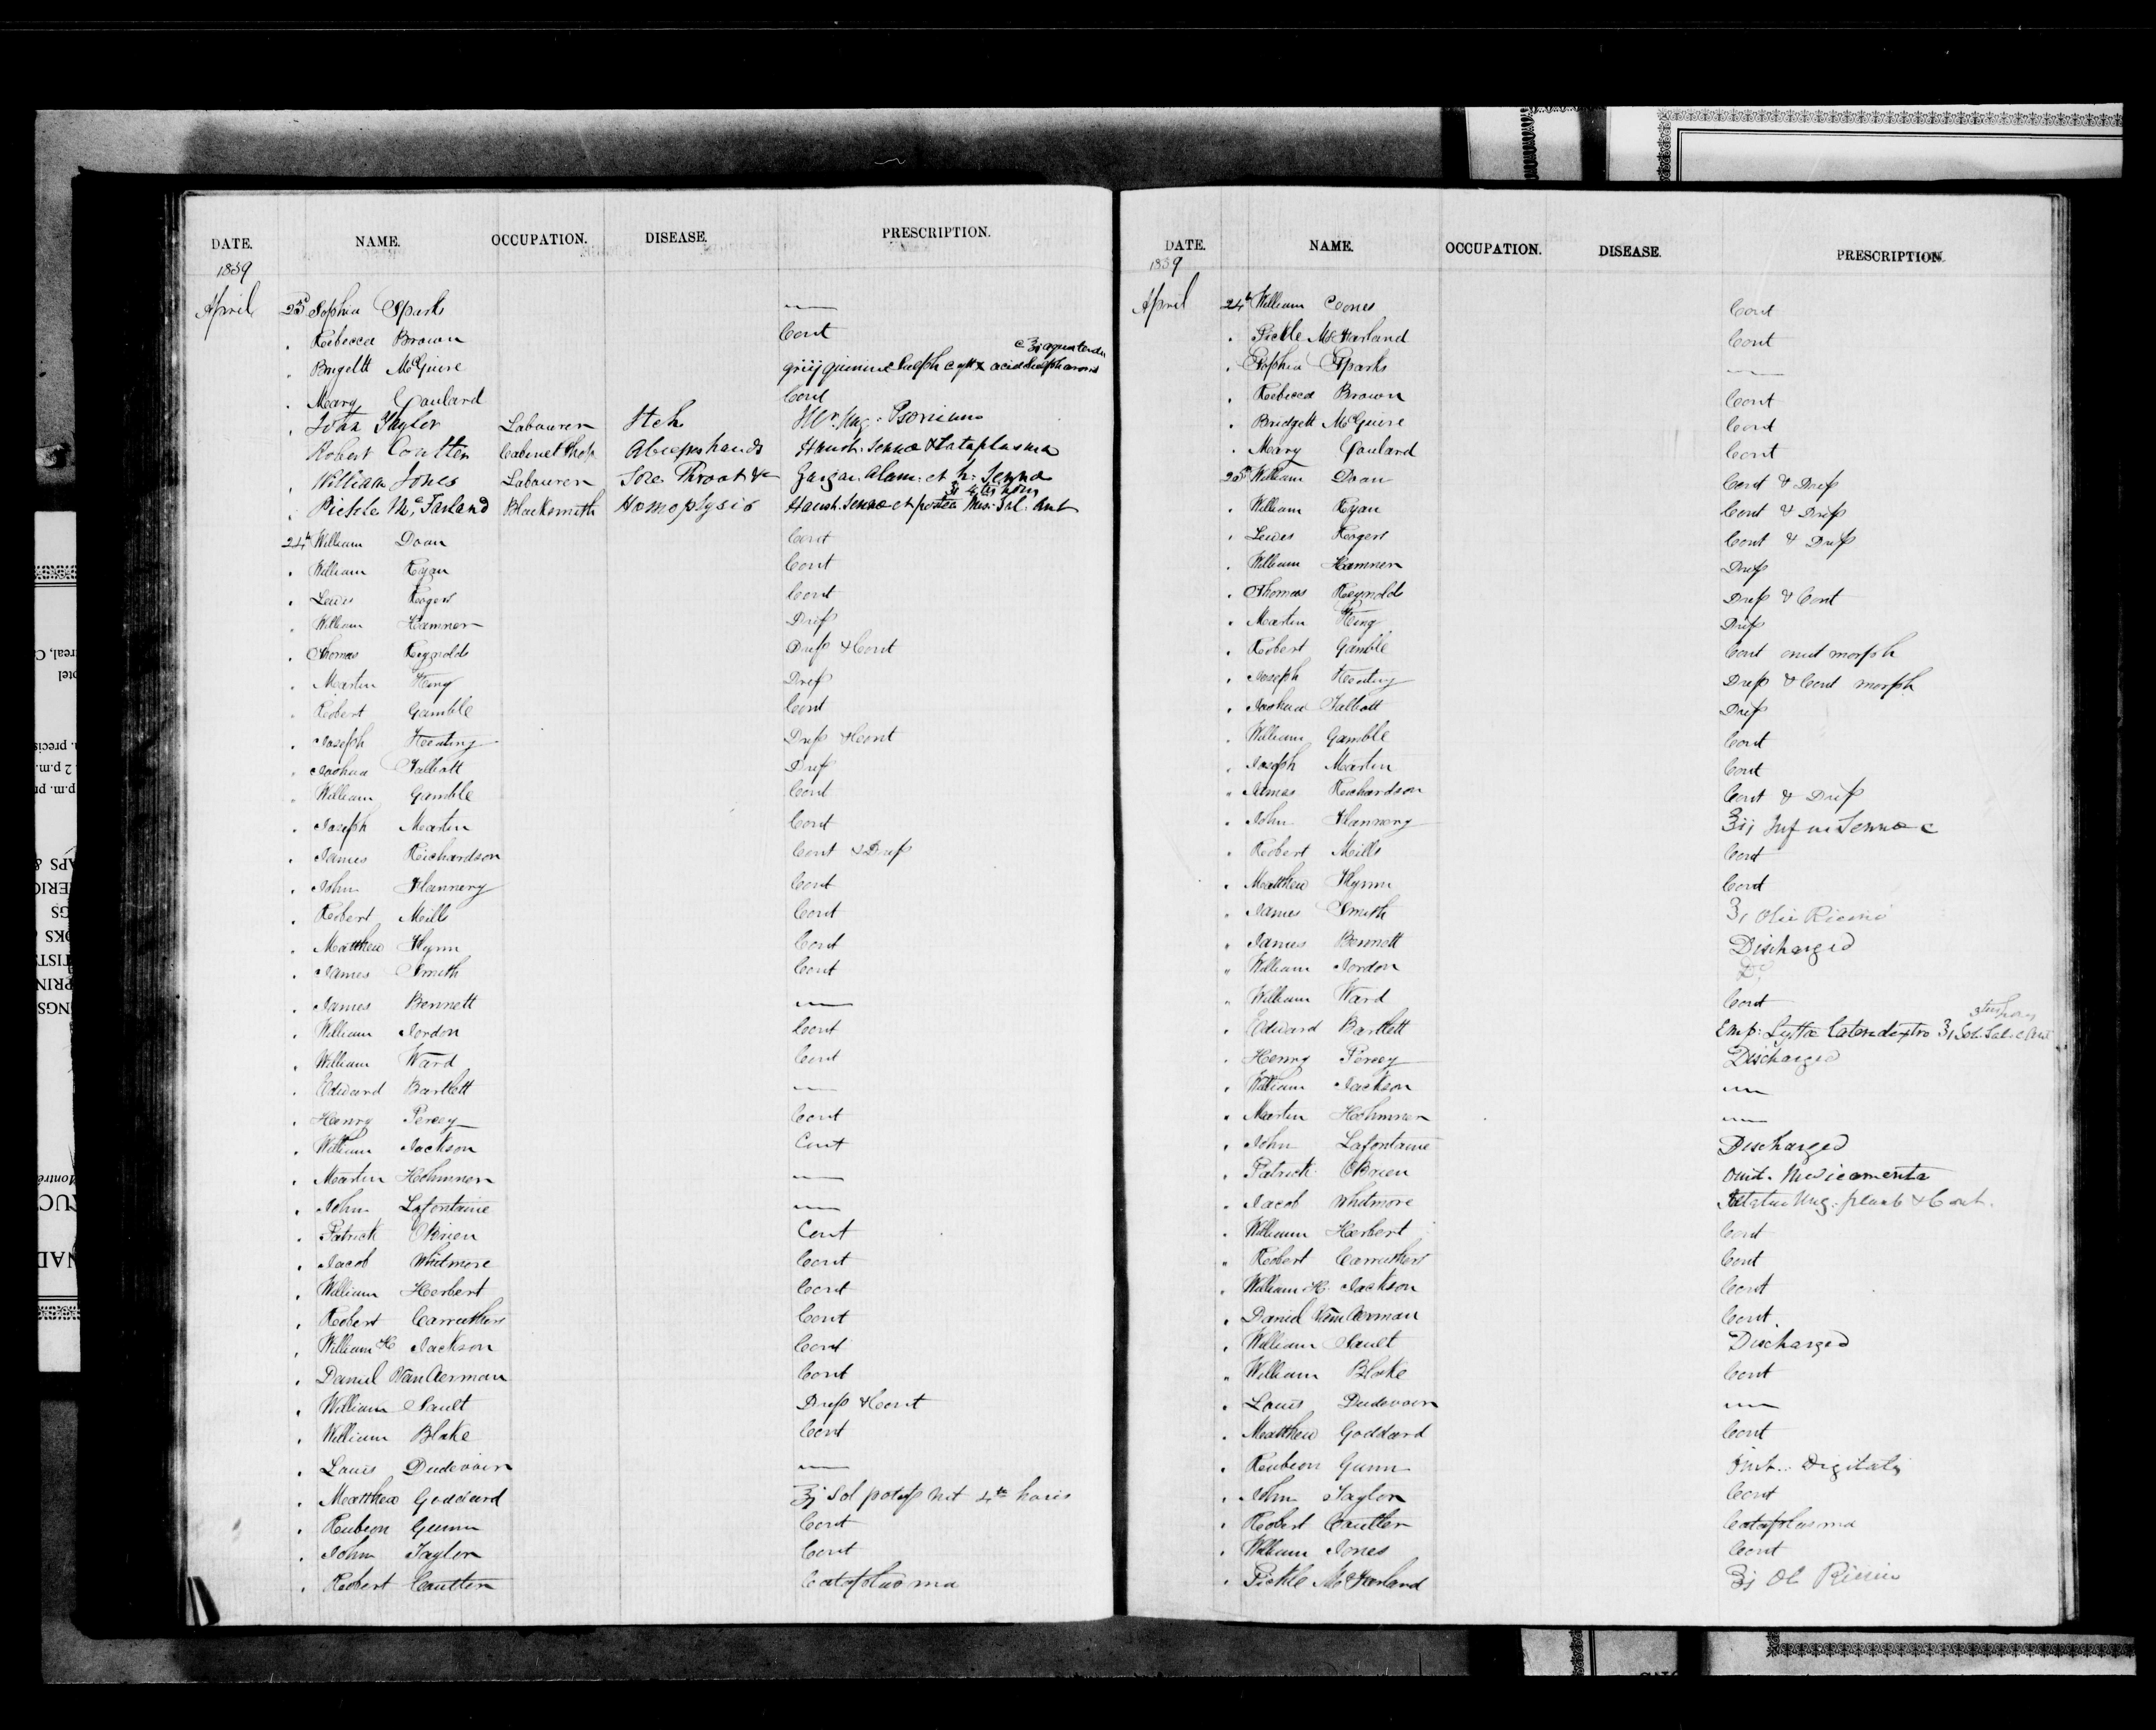 DATE. NAME. OCCUPATION. DISEASE. PRESCRIPTION.
1839
April 23d Sophia Sparks —
" Rebecca Brown Cont
c ℥i aqua
" Brigett McGuire griij quinine Sulph c acid Sulph
" Mary Goulard Cont
" John Taylor Labourer Itch Ung: Psoricum
Robert Coulter Cabinet Shop hands Haust. Senna & Cataplasma
" William Jones Labourer Sore Throat &c Gargar. Alum. et h: Senna
4tis horis
" Pickle McFarland Blacksmith Hamoptysis Haust. Senna et postea Mis: Sal: Ant
24th William Doan Cont
" William Ryan Cont
" Lewis Rogers Cont
" William Hamner Dress
" Thomas Reynolds Dress & Cont
" Martin King Dress
" Robert Gamble Cont
" Joseph Keating Dress & Cont
" Joshua Talbott Dress
" William Gamble Cont
" Joseph Martin Cont
" James Richardson Cont & Dress
" John Flannery Cont
" Robert Mills Cont
" Matthew Flynn Cont
" James Smith Cont
" James Bennett —
" William Jordon Cont
" William Ward Cont
" Edward Bartlett —
" Henry Percey Cont
" William Jackson Cont
" Martin Hohmner —
" John Lafontaine —
" Patrick OBrien Cont
" Jacob Whitmore Cont
" William Herbert Cont
" Robert Carruthers Cont
" William H Jackson Cont
" Daniel VanAerman Cont
" William Sault Dress & Cont
" William Blake Cont
" Louis Dudevoir —
" Matthew Goddard ℥j Sol potass Nit 4tis horis
" Reubeon Gunn Cont
" John Taylor Cont
" Robert Coulter Cataplasma
DATE. NAME. OCCUPATION. DISEASE. PRESCRIPTION.
1839
April 24th William Jones Cont
" Pickle McFarland Cont
" Sophia Sparks —
" Rebecca Brown Cont
" Bridgett McGuire Cont
" Mary Goulard Cont
25th William Doan Cont & Dress
" William Ryan Cont & Dress
" Lewis Rogers Cont & Dress
" William Hamner Dress
" Thomas Reynolds Dress & Cont
" Martin King Dress
" Robert Gamble Cont omit morph
" Joseph Keating Dress & Cont morph
" Joshua Talbott Dress
" William Gamble Cont
" Joseph Martin Cont
" James Richardson Cont & Dress
" John Flannery ℥ij Infus Senna c
" Robert Mills Cont
" Matthew Flynn Cont
" James Smith ℥i Olei Ricini
" James Bennett Discharged
" William Jordon Do
" William Ward Cont
3tiis horis
" Edward Bartlett Emp: Lyttæ Lateri dextro ℥i Sol: Sal: c Ant
" Henry Percey Discharged
" William Jackson —
" Martin Hohmner —
" John Lafontaine Discharged
" Patrick OBrien Omit. Medicamenta
" Jacob Whitmore Ung: plumb & Cont.
" William Herbert Cont
" Robert Carruthers Cont
" William H. Jackson Cont
" Daniel VanAerman Cont.
" William Sault Discharged
" William Blake Cont
" Louis Dudevoir —
" Matthew Goddard Cont
" Reubeon Gunn Omit.. Digitalis
" John Taylor Cont
" Robert Coulter Cataplasma
" William Jones Cont
" Pickle McFarland ℥j Ol Ricini